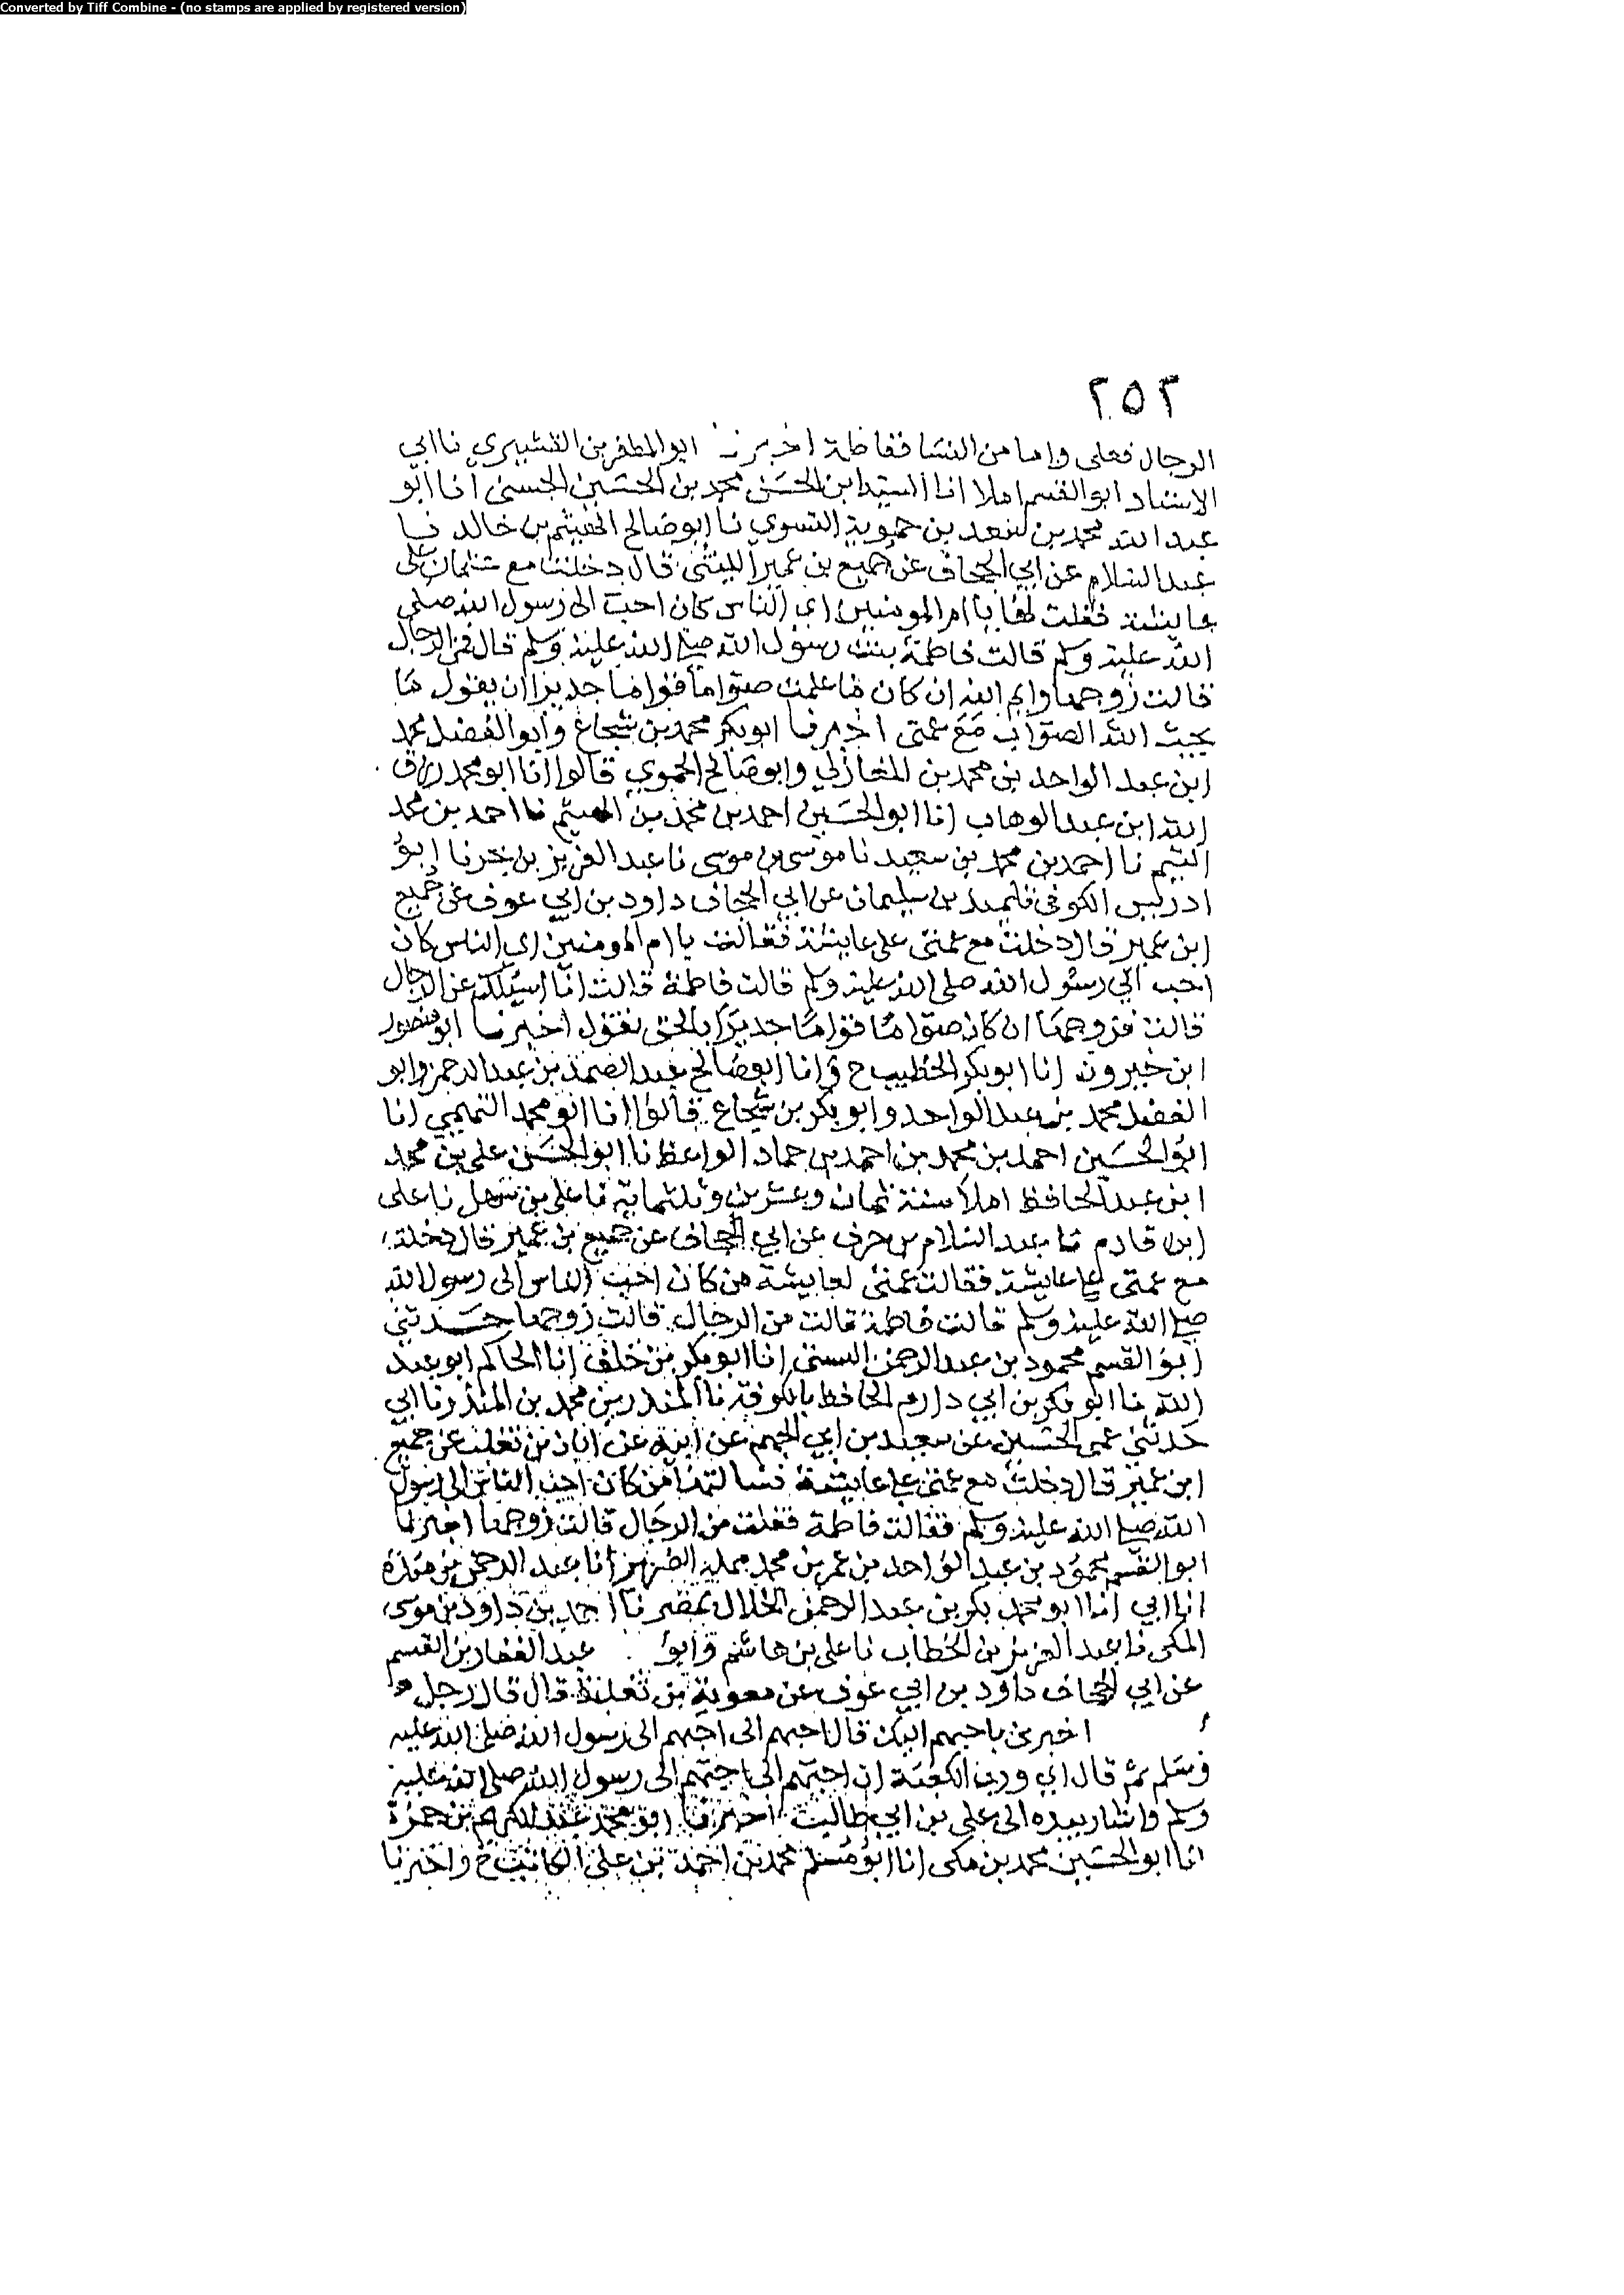 Converted by Tiff Combine - (no stamps are applied by registered version)
٢٥٢
الرجال فعلى واما من النسا ففاطمة اخبرنا ابو المظفر بن القشيري نا ابي
الاستاد ابو القسم املا انا السيد ابن الحسن محمد بن الحسين الحسنى انا ابو
عبد الله محمد بن سعد بن حموية النسوي نا ابو صالح الهيثم بن خالد نا
عبد السلام عن ابي الجحاف عن جميع بن عمير الليثى قال دخلت مع على
عايشة فقلت لها يا ام المومنين اي الناس كان احب الى رسول الله صلى
الله عليه وسلم قالت فاطمة بنت رسول الله صلى الله عليه وسلم قال فمن الرجال
قالت زوجها وايم الله ان كان ما علمت صواما قواما جديرا ان يقول ما
يحب الله الصواب مع عمتى اخبرنا ابو بكر محمد بن شجاع وابو الفضل محمد
ابن عبد الواحد بن محمد بن المغازلي وابو صالح الحموي قالوا انا ابو محمد رزق
الله ابن عبد الوهاب انا ابو الحسين احمد بن محمد بن الهيثم نا احمد بن محمد
نا احمد بن محمد بن سعيد نا موسى بن موسى نا عبد العزيز بن نا ابو
ادريس الكوفى تلميد بن سليمان عن ابي الجحاف داود بن ابي عوف عن جميع
ابن عمير قال دخلت مع عمتى على عايشة فقالت يا ام المومنين اي الناس كان
احب الي رسول الله صلى الله عليه وسلم قالت فاطمة قالت انا اسئلك عن الرجال
قالت فزوجها ان كان صواما قواما جديرا بالحق يقول اخبرنا ابو منصور
ابن خيرون انا ابو بكر الخطيب ح وانا ابو صالح عبد الصمد بن عبد الرحمن وابو
الفضل محمد بن عبد الواحد وابو بكر بن شجاع قالوا انا ابو محمد التميمي انا
ابو الحسين احمد بن محمد بن احمد بن حماد الواعظ نا ابو الحسن على بن محمد
ابن عبد الحافظ املا سنة ثمان وعشرين وثلثماية نا على بن سهل نا على
ابن قادم نا عبد السلام بن حرب عن ابي الجحاف عن جميع بن عمير قال دخلت
مع عمتى على عايشة فقالت عمتى لعايشة من كان احب الناس الى رسول الله
صلى الله عليه وسلم قالت فاطمة قالت من الرجال قالت زوجها حدثني
ابو القسم محمود بن عبد الرحمن البستى انا ابو بكر بن خلف انا الحاكم ابو عبد
الله نا ابو بكر بن ابي دارم الحافظ بالكوفة نا المنذر بن محمد بن المنذر نا ابي
حدثني عمى الحسين عن سعيد بن ابي الجهم عن ابيه عن ابان بن تغلب عن جميع
ابن عمير قال دخلت مع عمتى على عايشة فسالتها من كان احب الناس الى رسول
الله صلى الله عليه وسلم فقالت فاطمة فقلت من الرجال قالت زوجها اخبرنا
ابو القسم محمود بن عبد الواحد بن عمر بن محمد انا عبد الرحمن بن مندة
انا ابي انا ابو محمد بكر بن عبد الرحمن الخلال بمصر نا احمد بن داود بن موسى
المكى نا عبد العزيز بن الخطاب نا على بن هاشم وابو عبد الغفار بن القسم
عن ابي الجحاف داود بن ابي عوف عن معوية بن ثعلبة قال قال رجل
اخبرنى باحبهم اليك قال احبهم الى احبهم الى رسول الله صلى الله عليه
وسلم ثم قال اي ورب الكعبة ان احبهم الى احبهم الى رسول الله صلى الله عليه
وسلم واشار بيده الى على بن ابي طالب اخبرنا ابو محمد عبد الكريم بن حمزة
انا ابو الحسين محمد بن مكى انا ابو مسلم محمد بن احمد بن على الكاتب ح واخبرنا